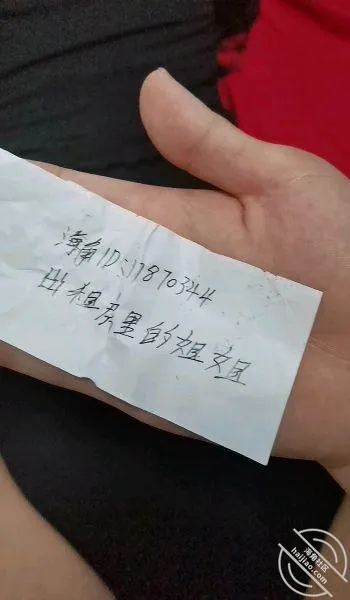 海角ID:11870344
出租房里的姐姐
海角社区
haijiao.com